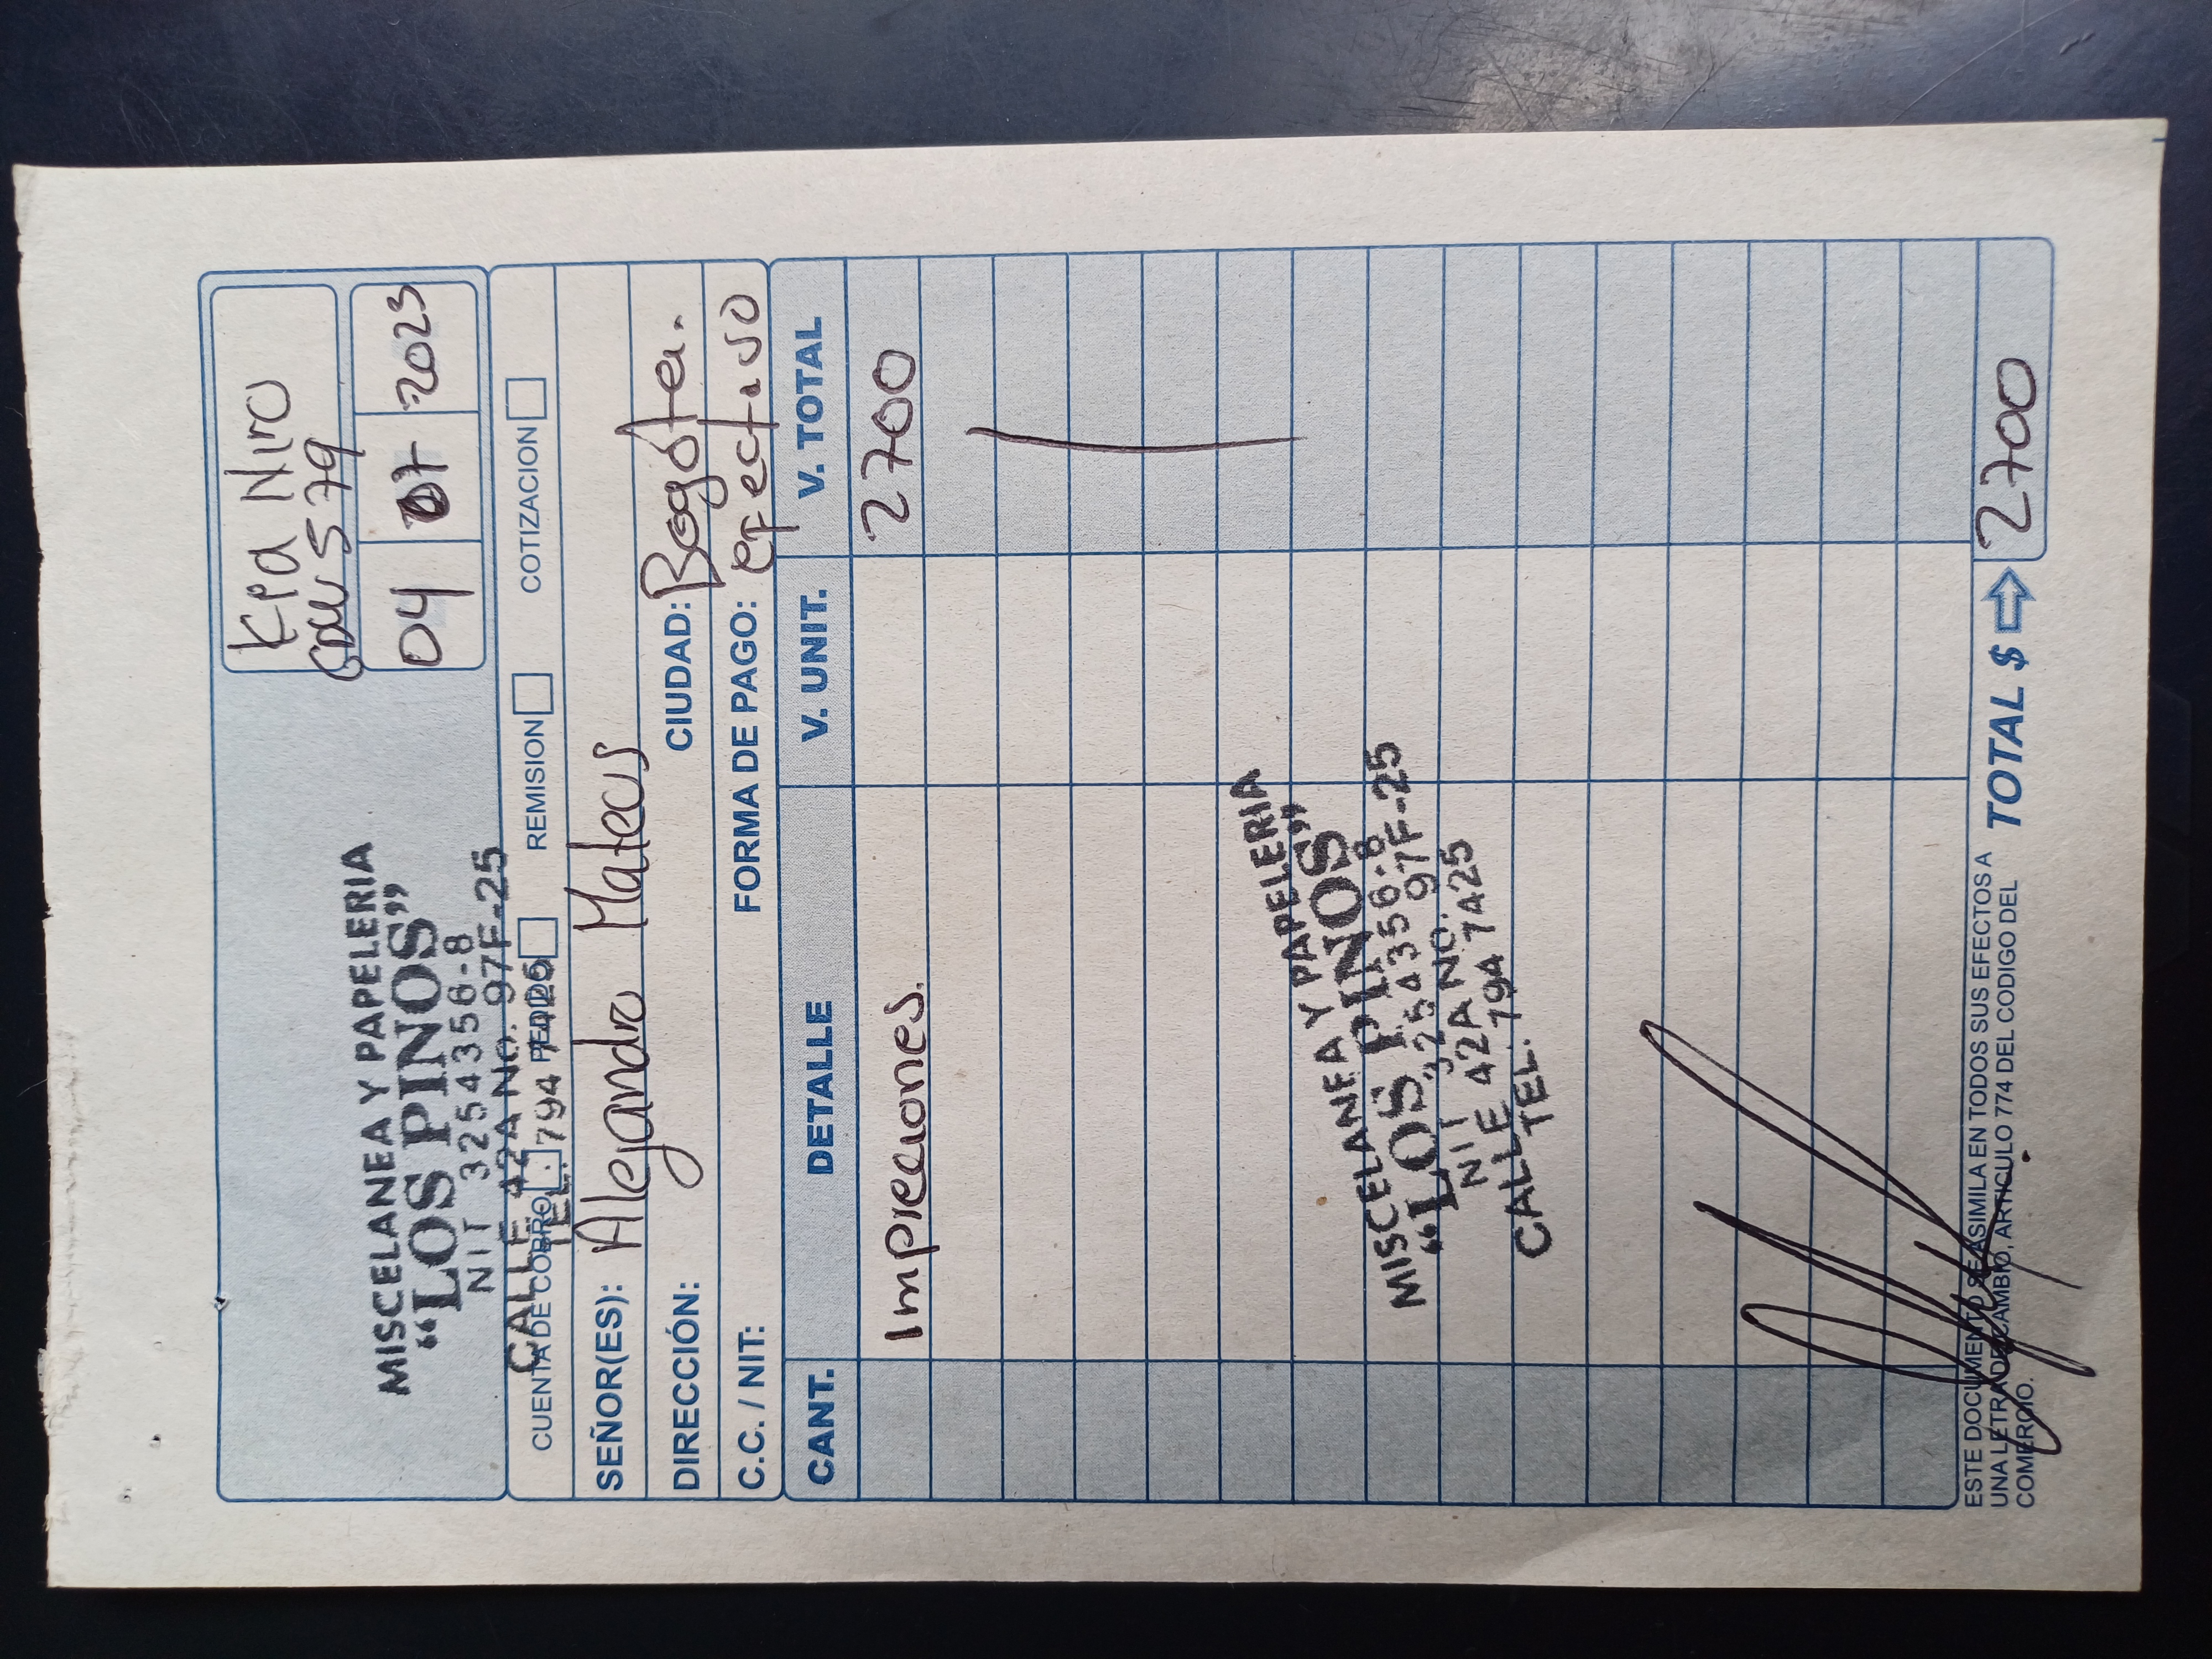 Kia Niro
GDW 579
04 07 2023
MISCELANEA Y PAPELERIA
“LOS PINOS”
NIT 3254356-8
CALLE 42A NO. 97F-25
TEL. 794 7425
CUENTA DE COBRO PEDIDO REMISION COTIZACION
SEÑOR(ES): Alejandro Mateus
DIRECCIÓN: CIUDAD: Bogota.
C.C. / NIT: FORMA DE PAGO: efectivo
CANT. DETALLE V. UNIT. V. TOTAL
Impreciones. 2700
MISCELANEA Y PAPELERIA
“LOS PINOS”
NIT 3254356-8
CALLE 42A NO. 97F-25
TEL. 794 7425
ESTE DOCUMENTO SE ASIMILA EN TODOS SUS EFECTOS A
UNA LETRA DE CAMBIO, ARTICULO 774 DEL CODIGO DEL
COMERCIO.
TOTAL $ 2700